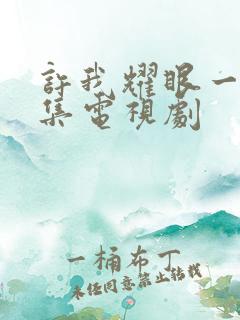 許我耀眼一
集電視劇
一桶布丁
未經同意禁止轉載